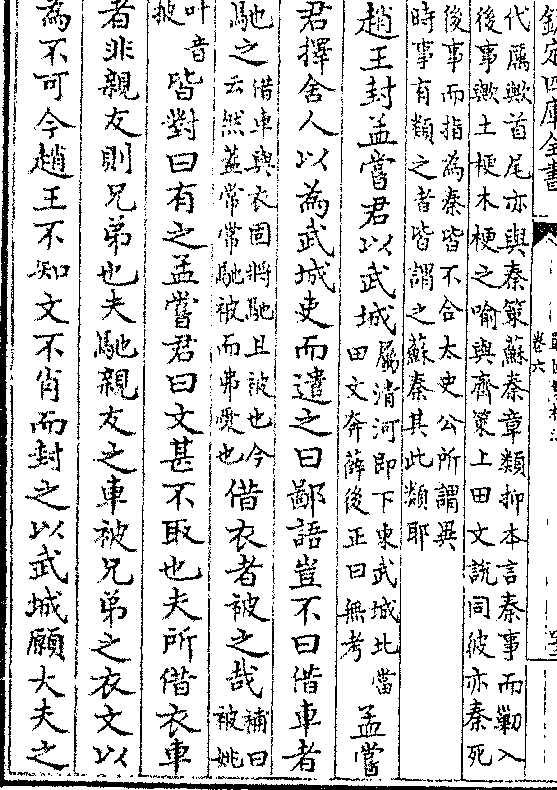 欽定四庫全書
卷六
代厲歟首尾亦與秦策蘇秦章類抑本言秦事而勦入
後事歟土梗木梗之喻與齊策上田文說同彼亦秦死
後事而指為秦皆不合太史公所謂異
時事有類之者皆謂之蘇秦其此類耶
趙王封孟嘗君以武城屬清河即下東武城此當田文奔薛後正曰無考孟嘗
君擇舍人以為武城吏而遣之曰鄙語豈不曰借車者
馳之借車與衣固將馳且被也今云然蓋常常馳被而弗愛也借衣者被之哉補曰被姚
叶音披皆對曰有之孟嘗君曰文甚不取也夫所借衣車
者非親友則兄弟也夫馳親友之車被兄弟之衣文以
為不可今趙王不知文不肖而封之以武城願大夫之